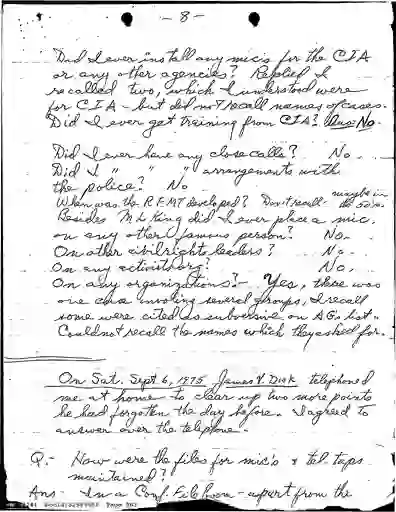 - 8 -
Did I ever install any mics for the CIA
or any other agencies? Replied I
recalled two, which I understood were
for CIA - but did not recall names of cases.
Did I ever get training from CIA? Ans - No.
Did I ever have any close calls? No.
Did I " " " arrangements with
the police? No
When was the R.F.M.T developed? Don't recall - maybe in the 50's.
Besides M L King did I ever place a mic.
on any other famous person? No.
On other civil rights leaders? No.
On any activists org? No.
On any organizations? - Yes, there was
one case involing several groups, I recall
some were cited as subversive on AG's list -
Could not recall the names which they asked for.
On Sat. Sept 6, 1975 James V. Dick telephoned
me at home to clear up two more points
he had forgoten the day before. I agreed to
answer over the telephone.
Q. - How were the files for mic's & tel. taps
maintained?
Ans - In a Conf. File Room - apart from the